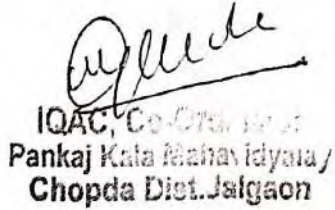 IQAC, Co-Ordinator
Pankaj Kala Mahavidyala/
Chopda Dist.Jalgaon